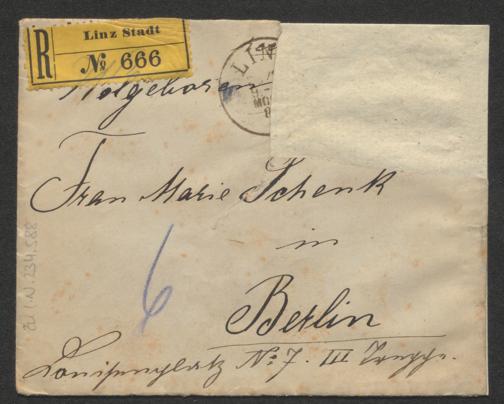 R
Linz Stadt
No 666
LIN
Wolgeboren
Frau Marie Schenk
in
Berlin
6
Louisenplatz No: 7. III Treppe.
zu I.N. 234.588